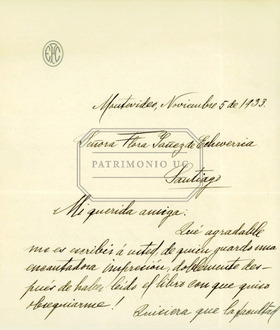 EPC
Montevideo, Noviembre 5 de 1933.
Señora Flora Yañez de Echeverria
PATRIMONIO UC
Santiago
Mi querida amiga:
Qué agradable
me es escribir á usted de quien guardo una
encantadora impresión, doblemente des-
pués de haber leido el libro con que quiso
obsequiarme!
Quisiera que la facultad